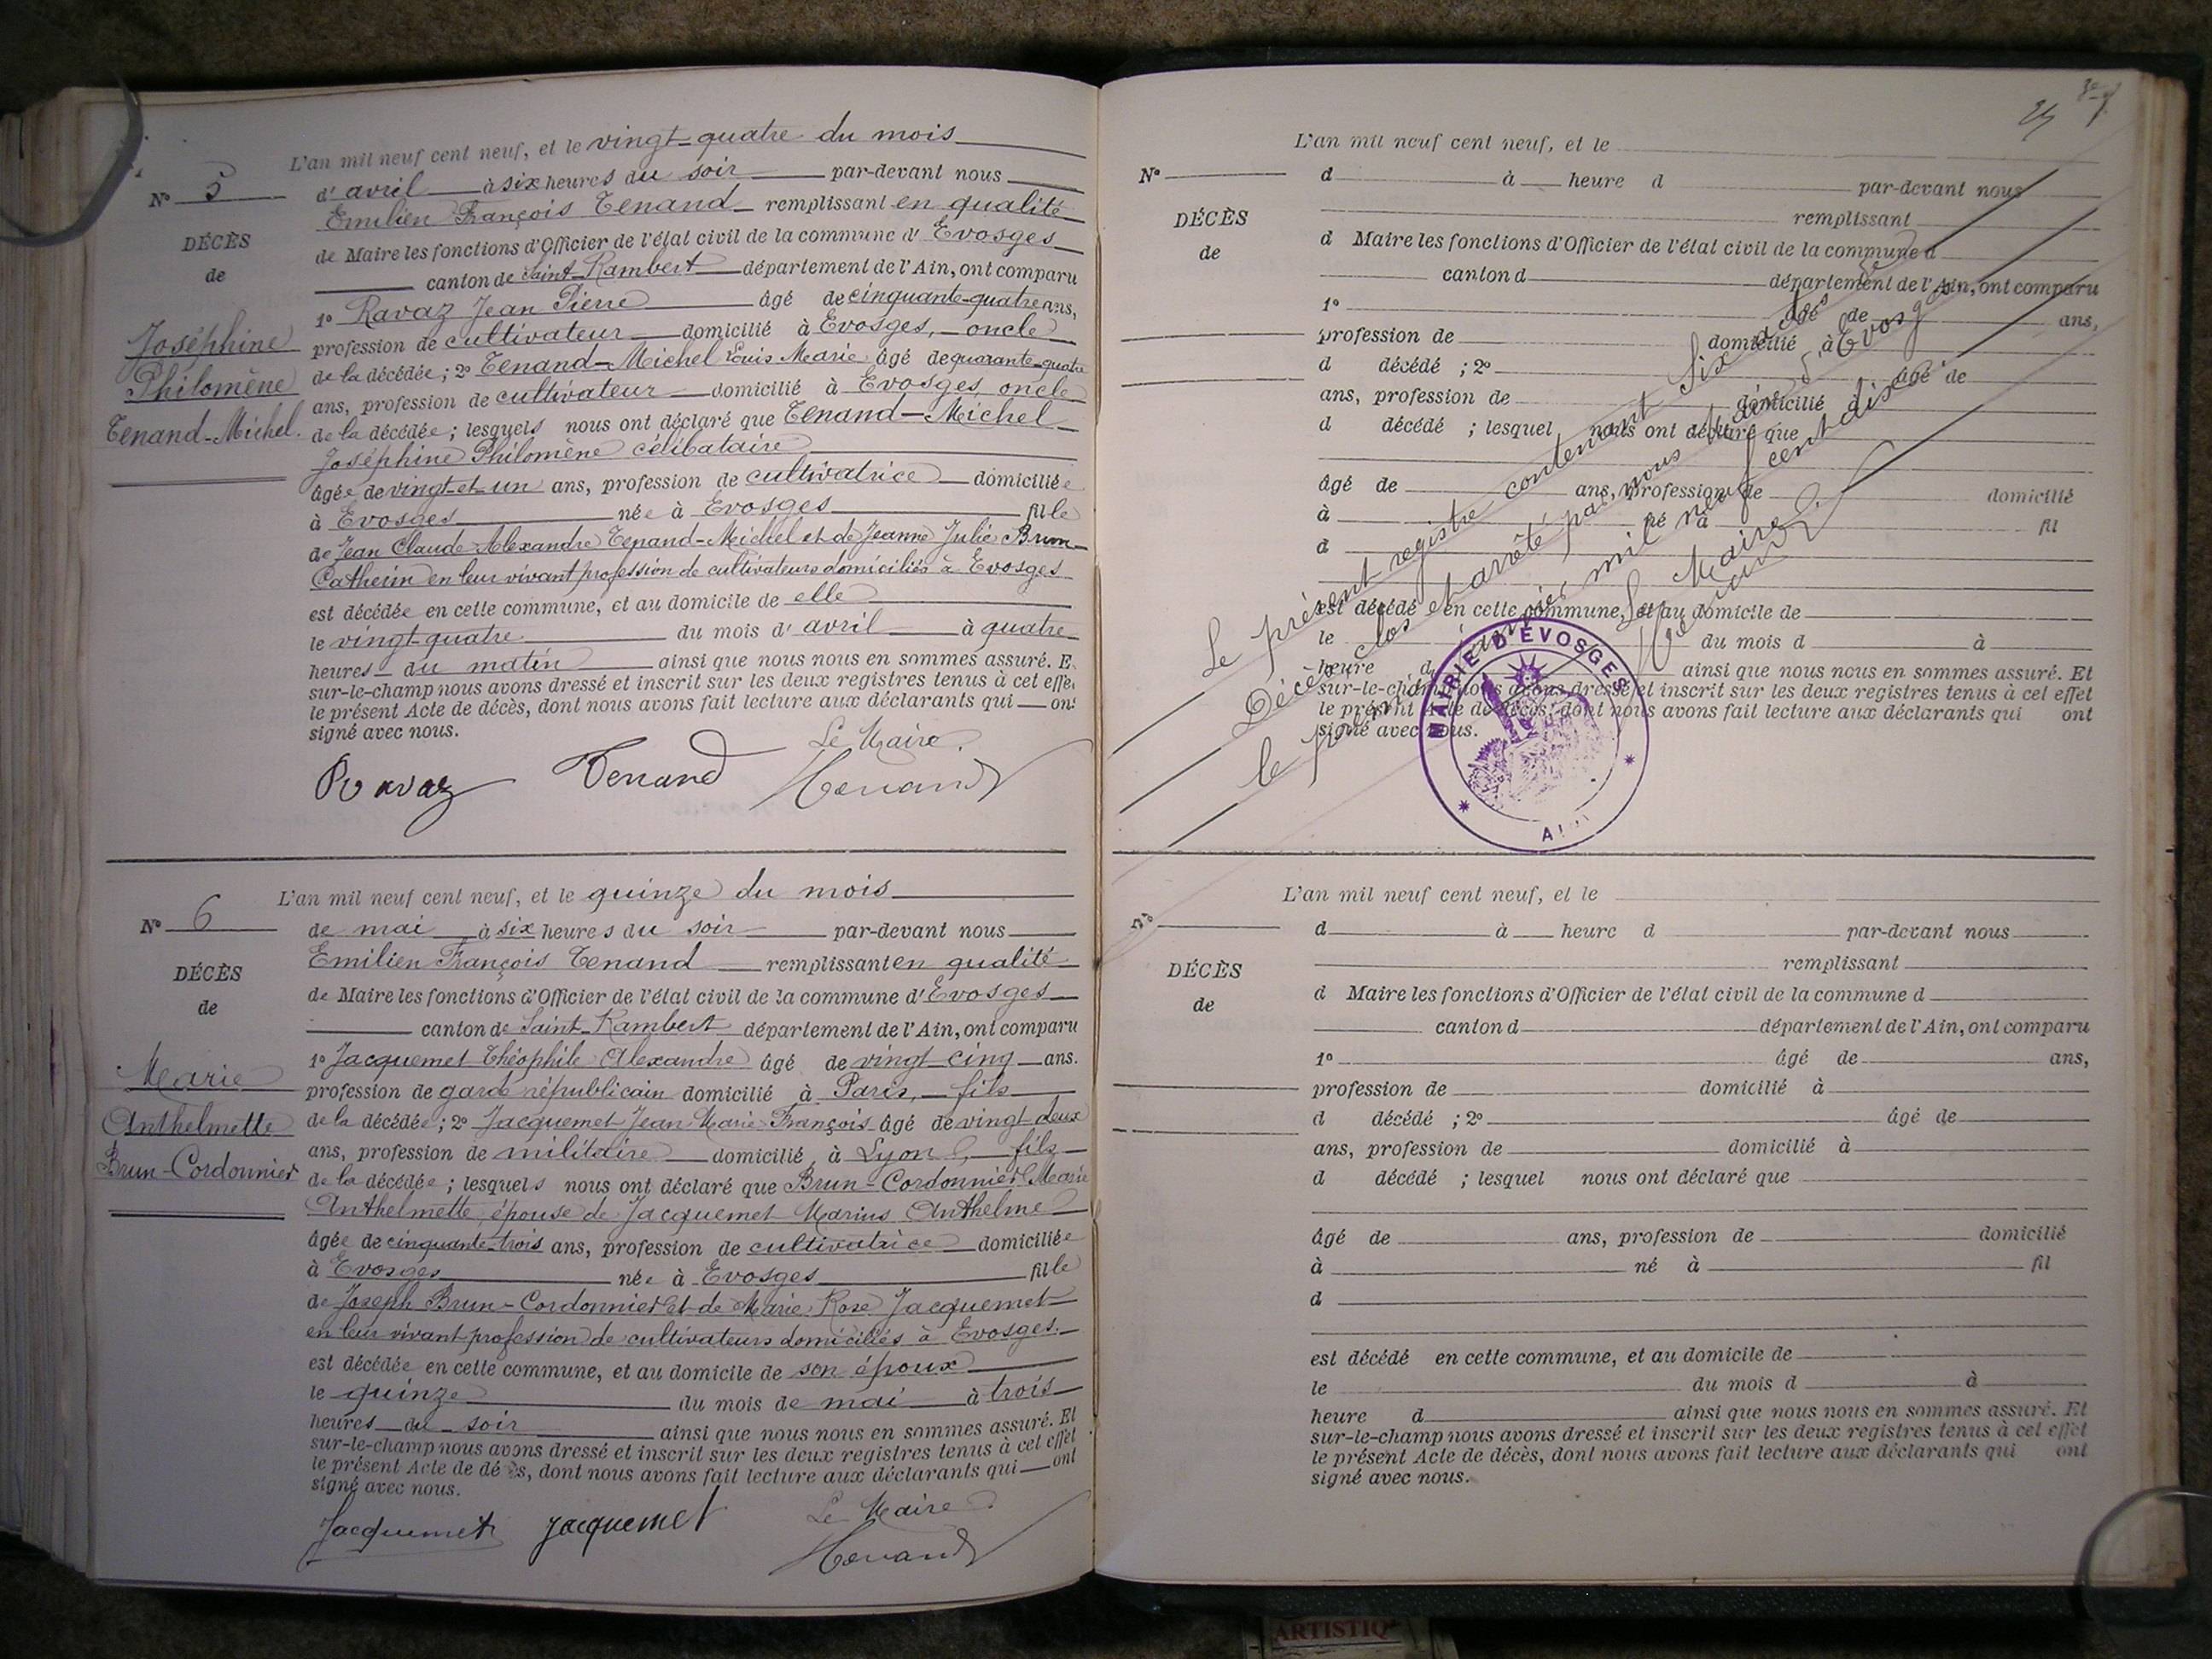 L'an mil neuf cent neuf, et le vingt-quatre du mois
N° 5
d'avril à six heures du soir par-devant nous
Emilien François Tenand remplissant en qualité
DÉCÈS
de Maire les fonctions d'Officier de l'état civil de la commune d'Evosges
de
canton de Saint-Rambert département de l'Ain, ont comparu
1° Ravaz Jean Pierre âgé de cinquante-quatre ans,
Joséphine
profession de cultivateur domicilié à Evosges, oncle
Philomène
de la décédée; 2° Tenand-Michel Louis Marie âgé de quarante-quatre
ans, profession de cultivateur domicilié à Evosges, oncle
Tenand-Michel.
de la décédée; lesquels nous ont déclaré que Tenand-Michel
Joséphine Philomène célibataire
âgée de vingt-et-un ans, profession de cultivatrice domiciliée
à Evosges née à Evosges fille
de Jean Claude Alexandre Tenand-Michel et de Jeanne Julie Brun-
Catherin en leur vivant profession de cultivateurs domiciliés à Evosges
est décédée en cette commune, et au domicile de elle
le vingt quatre du mois d'avril à quatre
heures du matin ainsi que nous nous en sommes assuré. E
sur-le-champ nous avons dressé et inscrit sur les deux registres tenus à cet effe
le présent Acte de décès, dont nous avons fait lecture aux déclarants qui ont
signé avec nous.
Le Maire.
Ravaz Tenand Tenand
L'an mil neuf cent neuf, et le quinze du mois
N° 6
de mai à six heures du soir par-devant nous
Emilien François Tenand remplissant en qualité
DÉCÈS
de Maire les fonctions d'Officier de l'état civil de la commune d'Evosges
de
canton de Saint-Rambert département de l'Ain, ont comparu
1° Jacquemet Théophile Alexandre âgé de vingt cinq ans.
Marie
profession de garde républicain domicilié à Paris, fils
Anthelmette
de la décédée; 2° Jacquemet Jean Marie François âgé de vingt-deux
ans, profession de militaire domicilié à Lyon, fils
Brun-Cordonnier
de la décédée; lesquels nous ont déclaré que Brun-Cordonnier Marie
Anthelmette, épouse de Jacquemet Marius Anthelme
âgée de cinquante-trois ans, profession de cultivatrice domiciliée
à Evosges née à Evosges fille
de Joseph Brun-Cordonnier et de Marie Rose Jacquemet
en leur vivant profession de cultivateurs domiciliés à Evosges.
est décédée en cette commune, et au domicile de son époux
le quinze du mois de mai à trois
heures du soir ainsi que nous nous en sommes assuré. Et
sur-le-champ nous avons dressé et inscrit sur les deux registres tenus à cet effet
le présent Acte de dé ès, dont nous avons fait lecture aux déclarants qui ont
signé avec nous.
Le Maire
Jacquemet Jacquemet Tenand
L'an mil neuf cent neuf, et le
N°
d à heure d par-devant nous
remplissant
DÉCÈS
d Maire les fonctions d'Officier de l'état civil de la commune d
de
canton d département de l'Ain, ont comparu
1° âgé de ans,
profession de domicilié à
d décédé ; 2° âgé de
ans, profession de domicilié à
d décédé ; lesquel nous ont déclaré que
âgé de ans, profession de domicilié
à né à fil
d
est décédé en cette commune, et au domicile de
le du mois d à
heure d ainsi que nous nous en sommes assuré. Et
sur-le-champ nous avons dressé et inscrit sur les deux registres tenus à cet effet
le présent Acte de décès, dont nous avons fait lecture aux déclarants qui ont
signé avec nous.
Le présent registre contenant six actes de
Décès clos et arrêté par nous Maire d'Evosges
le premier janvier mil neuf cent dix
Le Maire
Tenand
MAIRIE D'EVOSGES
L'an mil neuf cent neuf, et le
N°
d à heure d par-devant nous
remplissant
DÉCÈS
d Maire les fonctions d'Officier de l'état civil de la commune d
de
canton d département de l'Ain, ont comparu
1° âgé de ans,
profession de domicilié à
d décédé ; 2° âgé de
ans, profession de domicilié à
d décédé ; lesquel nous ont déclaré que
âgé de ans, profession de domicilié
à né à fil
d
est décédé en cette commune, et au domicile de
le du mois d à
heure d ainsi que nous nous en sommes assuré. Et
sur-le-champ nous avons dressé et inscrit sur les deux registres tenus à cet effet
le présent Acte de décès, dont nous avons fait lecture aux déclarants qui ont
signé avec nous.
ARTISTIQ